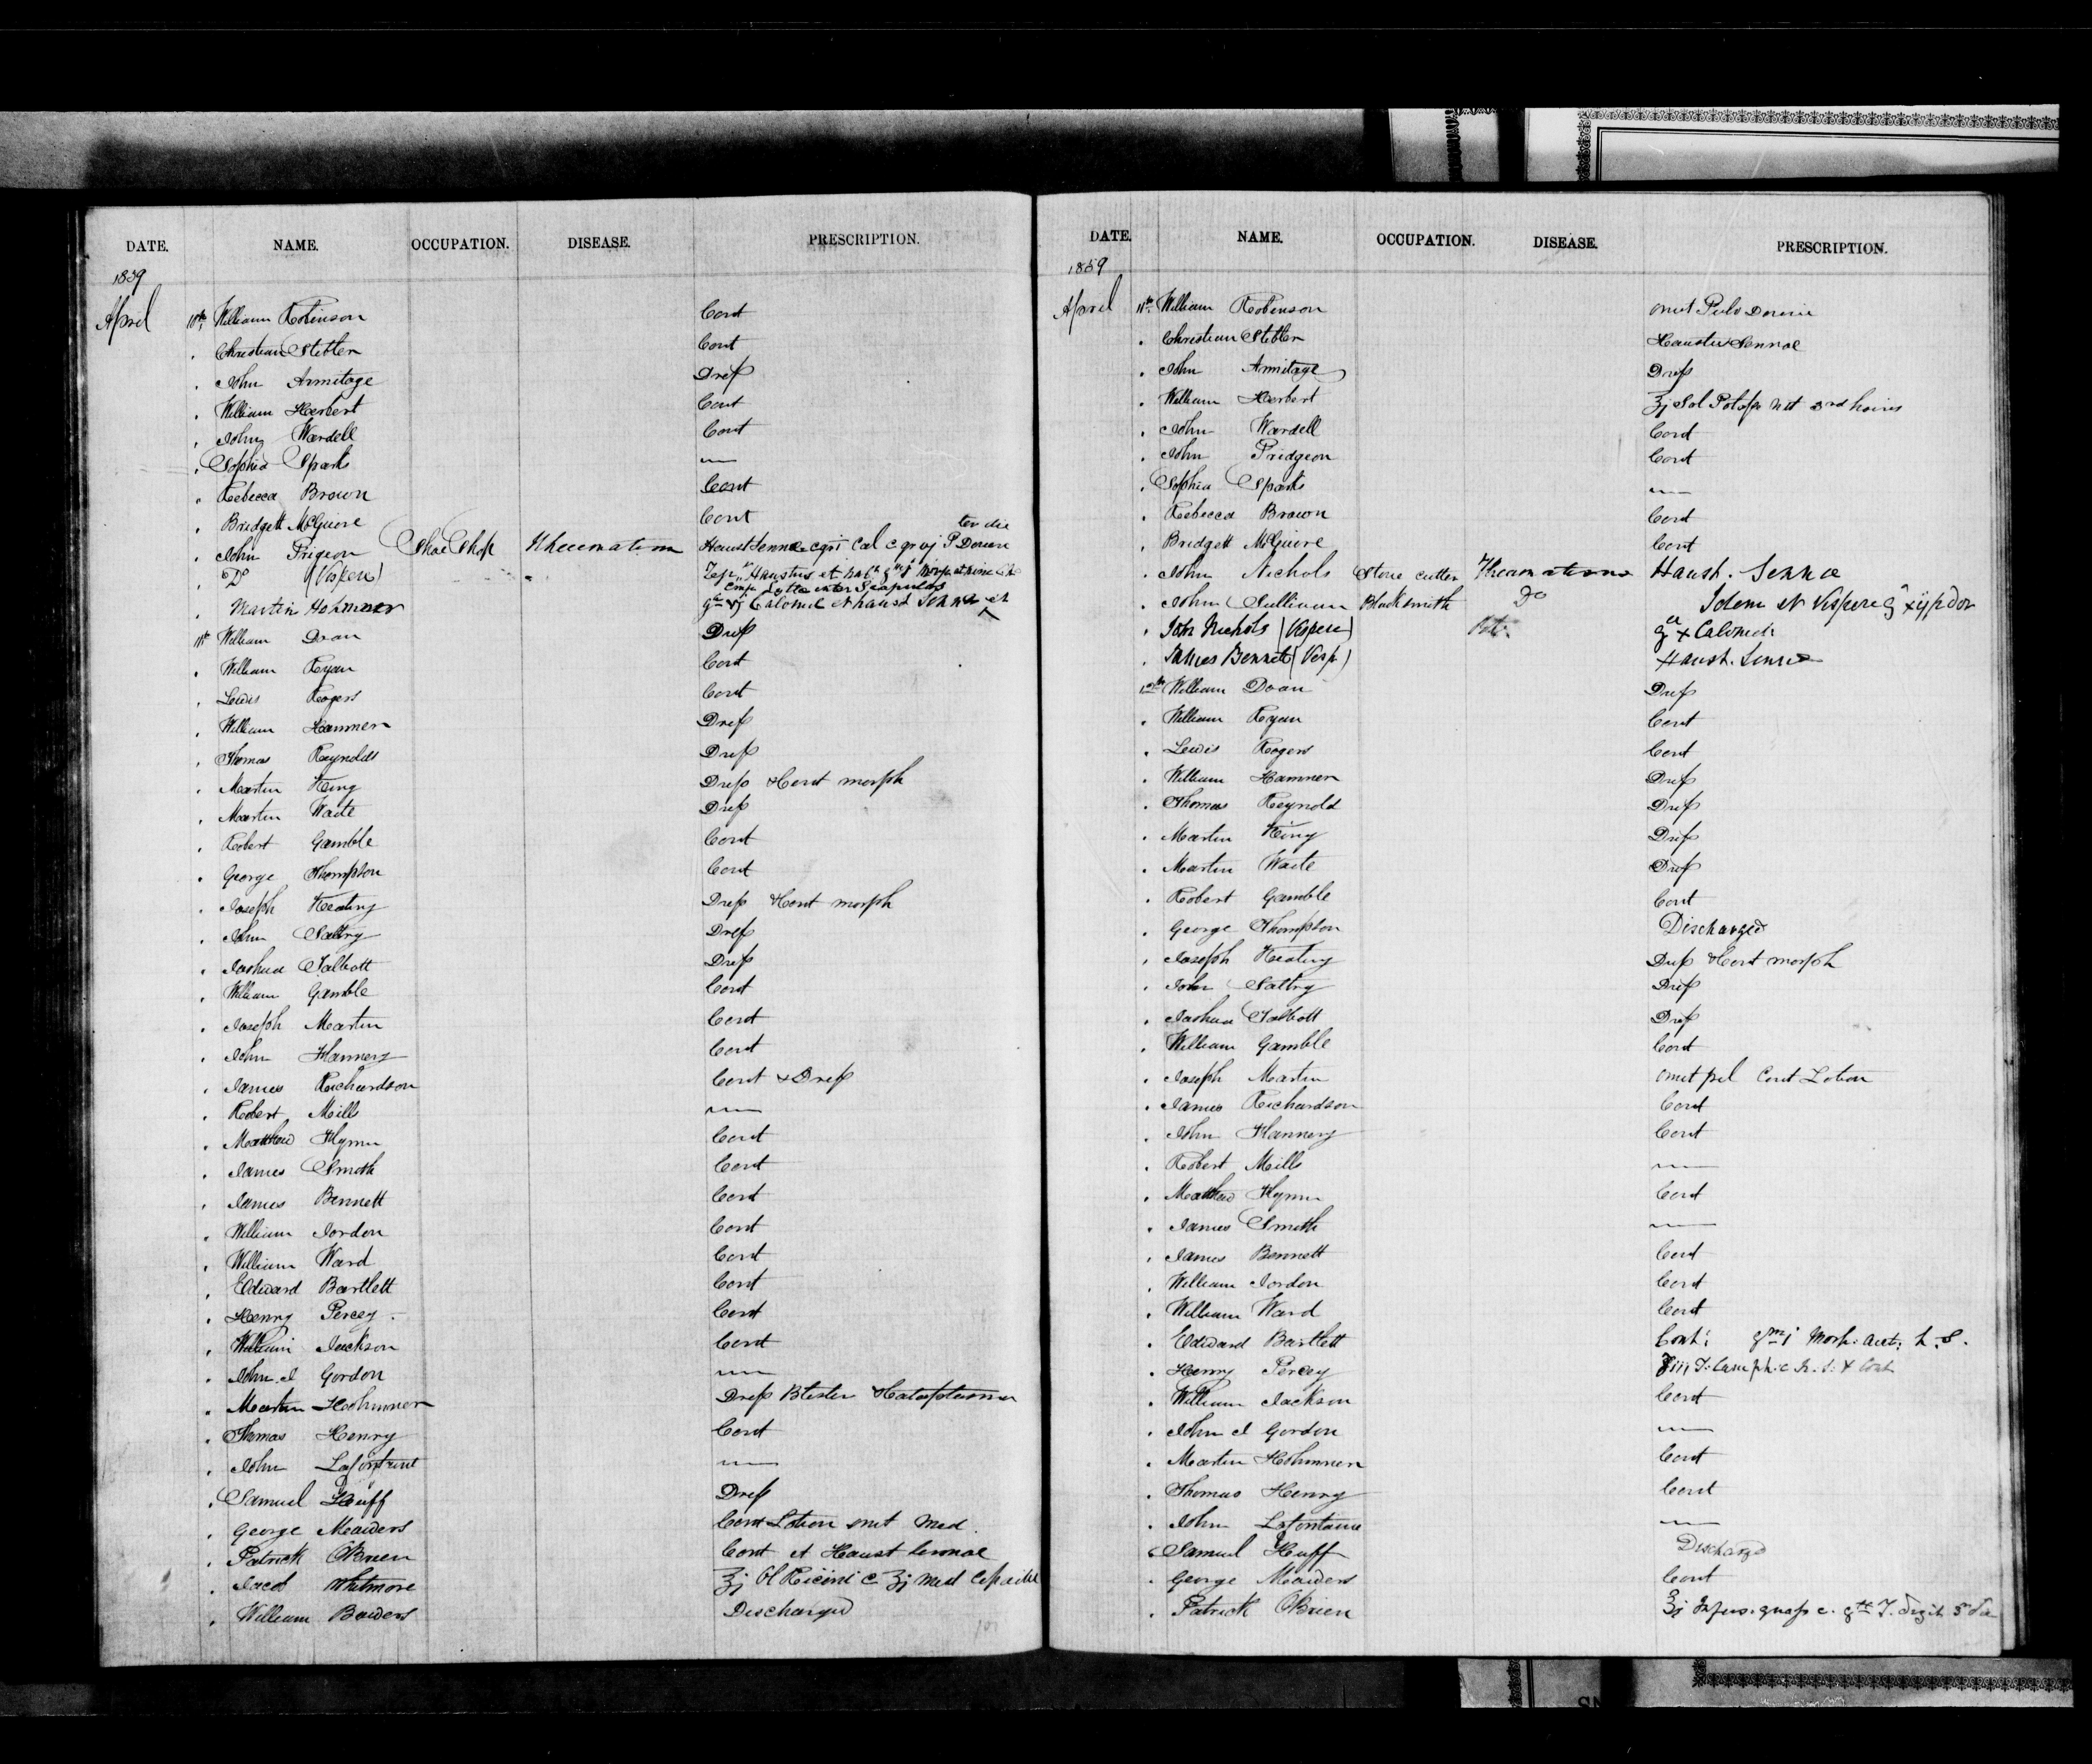 DATE. NAME. OCCUPATION. DISEASE. PRESCRIPTION.
1859
April 10th William Robinson Cont
Christian Stebler Cont
John Armitage Dress
William Herbert Cont
John Wardell Cont
Sophia Sparks —
Rebecca Brown Cont
Bridgett McGuire Cont
ter die
John Prigeon Shoe Shop Rheumatism Haust Sennae Cal c gr vj P Doveri
Do (Vespere) Haustus et
inter Scapulas
Martin Hohmner Calomel et haust Sennae et
11th William Doan Dress
William Ryan Cont
Lewis Rogers Cont
William Hammer Dress
Thomas Reynolds Dress
Martin King Dress & Cont morph
Martin Waite Dress
Robert Gamble Cont
George Thompson Cont
Joseph Keating Dress & Cont morph
John Sattry Dress
Joshua Talbott Dress
William Gamble Cont
Joseph Martin Cont
John Flannery Cont
James Richardson Cont & Dress
Robert Mills —
Matthew Flynn Cont
James Smith Cont
James Bennett Cont
William Jordon Cont
William Ward Cont
Edward Bartlett Cont
Henry Percey Cont
William Jackson Cont
John J Gordon —
Martin Hohmner Dress Blister & Cataplasma
Thomas Henry Cont
John Lafontaine —
Samuel Huff Dress
George Meaders Cont Lotion omit Med.
Patrick OBrien Cont et Haust Sennae
Jacob Whitmore ʒj Ol Ricini c ʒj Mist Copaibae
William Bowders Discharged
101
DATE. NAME. OCCUPATION. DISEASE. PRESCRIPTION.
1859
April 11th William Robinson omit Pulv Doveri
Christian Stebler Haustus Sennae
John Armitage Dress
William Herbert ʒj Sol Potass Nit 3rd hours
John Wardell Cont
John Pridgeon Cont
Sophia Sparks —
Rebecca Brown Cont
Bridgett McGuire Cont
John Nichols Stone cutter Rheumatisms Haust. Sennae
John Sullivan Blacksmith Do Idem et Vespere
John Nichols (Vespere) x Calomel
James Bennett (Vesp) Haust. Sennae
12th William Doan Dress
William Ryan Cont
Lewis Rogers Cont
William Hammer Dress
Thomas Reynold Dress
Martin King Dress
Martin Waite Dress
Robert Gamble Cont
George Thompson Discharged
Joseph Keating Dress & Cont morph
John Sattry Dress
Joshua Talbott Dress
William Gamble Cont
Joseph Martin omit pil Cont Lotion
James Richardson Cont
John Flannery Cont
Robert Mills —
Matthew Flynn Cont
James Smith —
James Bennett Cont
William Jordon Cont
William Ward Cont
Edward Bartlett Cont: Morph: Acet: h.s.
Henry Percey T. Camph: & Cont
William Jackson Cont
John J Gordon —
Martin Hohmner Cont
Thomas Henry Cont
John Lafontaine —
Samuel Huff Discharged
George Meaders Cont
Patrick OBrien ʒj Infus. quass c. T. digit